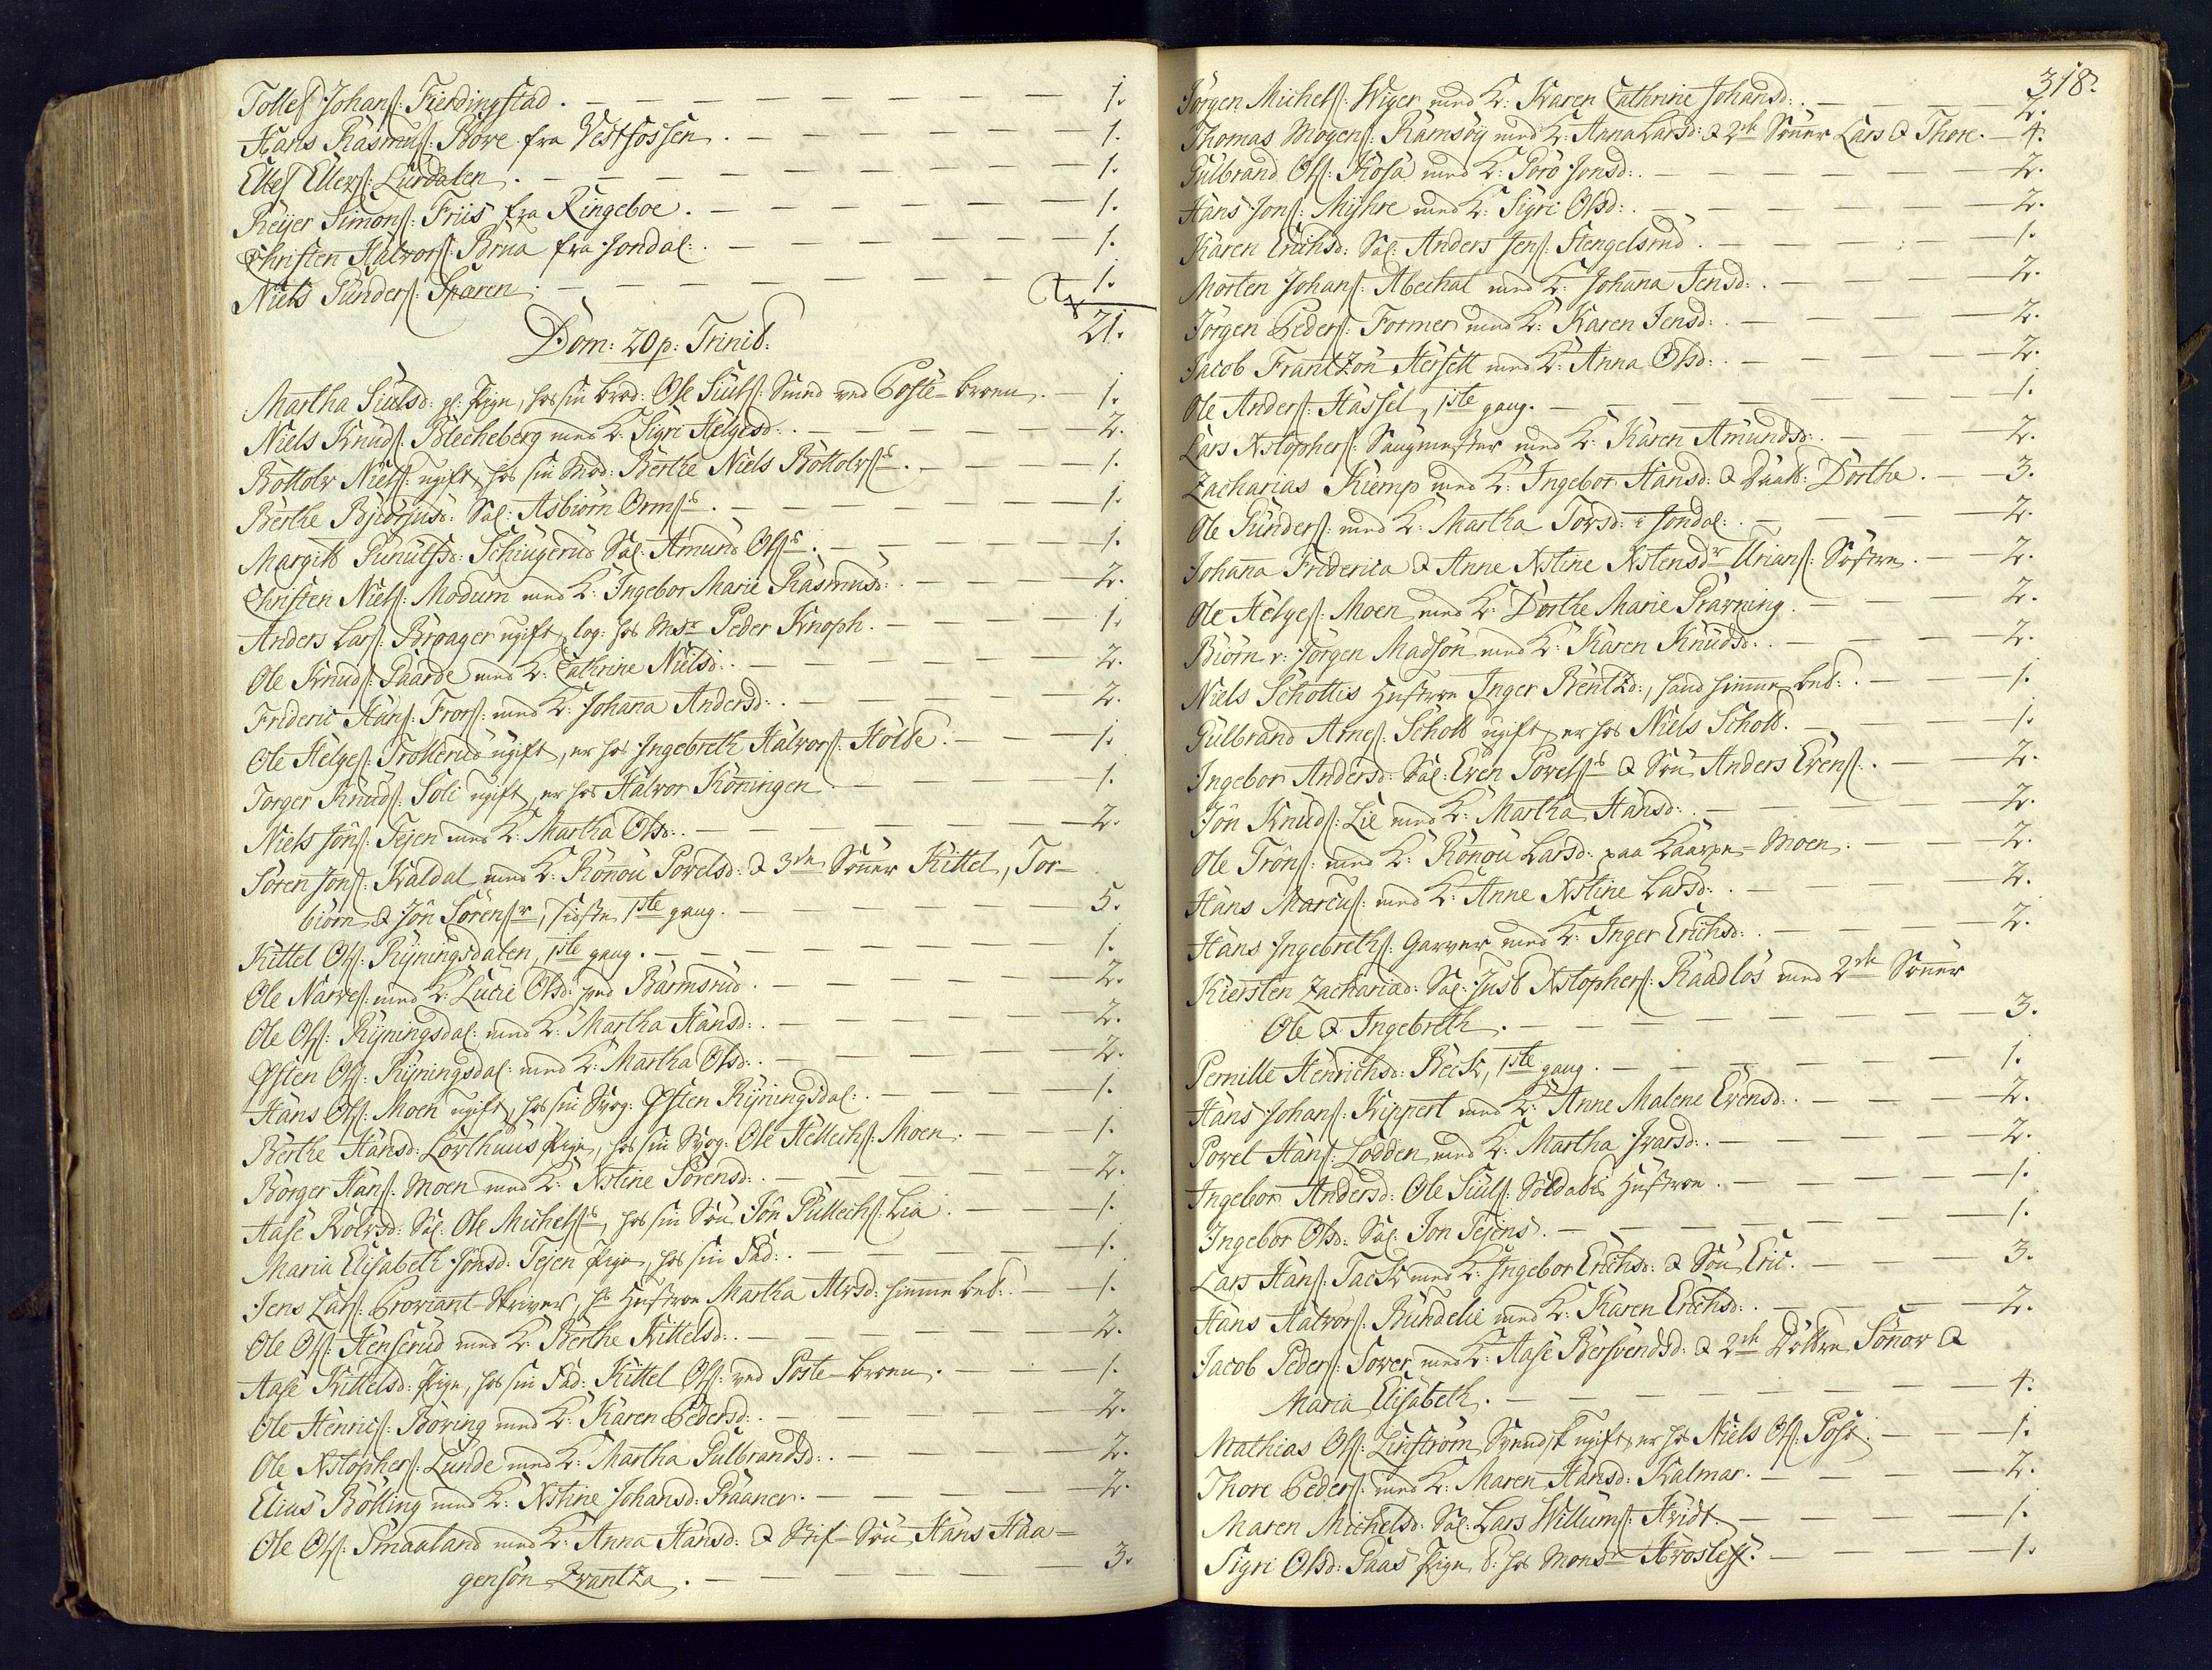 Tollef Johans: Fierdingstad. 1.
Hans Rasmus: Bore fra Vestfossen. 1.
Ellef Ellefs: Lurdalen. 1.
Reijer Simons: Friis fra Ringeboe. 1.
Christen Halvors: Brua fra Jondal: 1.
Niels Gunders: Sparen. 1.
21.
Dom: 20 p: Trinit:
Martha Siulsd: gl: Pige, hos sin brod: Ole Siuls: Smed ved Poste-broen. 1.
Niels Knuds: Blecheberg med K: Sigri Helgesd: 2.
Bottolv Niels: ugift, hos sin Mod: Berthe Niels Bottolvs: 1.
Berthe Bjørjusd: Sal: Asbiørn Orms: 1.
Margith Gunulsd: Schiugerud Sal: Amund Ols: 1.
Christen Niels: Modum med K: Ingebor Marie Rasmusd: 2.
Anders Lars: Broager ugift, log: hos Msr Peder Knoph. 1.
Ole Knuds: Gaarde med K: Cathrine Nielsd: 2.
Frideric Hans: Frors: med K: Johana Andersd: 2.
Ole Helges: Trollerud ugift, er hos Ingebreth Halvors: Holte. 1.
Torger Knuds: Soli ugift, er hos Halvor Köningen 1.
Niels Jons: Tejen med K: Martha Olsd: 2.
Søren Jons: Kaldal med K: Rönou Povelsd: & 3de Sönner Kittel, Tor-
biørn & Jon Sørens:, sidste 1ste gang. 5.
Kittel Ols: Ryningsdalen, 1ste gang. 1.
Ole Narves: med K: Lucie Olsd: ved Barmsrud. 2.
Ole Ols: Ryningsdal: med K: Martha Hansd: 2.
Østen Ols: Ryningsdal: med K: Martha Olsd: 2.
Hans Ols: Moen ugift, hos sin Svog: Østen Ryningsdal: 1.
Berthe Hansd: Lorthuus Pige, hos sin Svog: Ole Hellechs: Moen. 1.
Börger Hans: Moen med K: Xstine Sørensd: 2.
Aase Rolvsd: Sal: Ole Michels:, hos sin Sön Jon Gullechs: Lia. 1.
Maria Elisabeth Jonsd: Tejen Pige, hos sin Fad: 1.
Jens Lars: Proviant-Skriver hs Hustroe Martha Alvsd: hiemme bet: 1.
Ole Ols: Henserud med K: Berthe Kittelsd: 2.
Aase Kittelsd: Pige, hos sin Fad: Kittel Ols: ved Poste-broen. 1.
Ole Henrics: Boring med K: Karen Pedersd: 2.
Ole Xstophers: Lunde med K: Martha Gulbrandsd: 2.
Elius Bölling med K: Xstine Johansd: Graaner. 2.
Ole Ols: Smaaland med K: Anna Hansd: & Stif-Sön Hans Haa-
gensön Zvantza. 3.
318.
Jørgen Michels: Wiger med K: Karen Cathrine Johansd: 2.
Thomas Mogens: Ramsöy med K: Anna Larsd: & 2de Sönner Lars & Thore. 4.
Gulbrand Ols: Kosa med K: Goro Jonsd: 2.
Hans Jons: Myhre med K: Sigri Olsd: 2.
Karen Erichsd: Sal: Anders Jens: Stengelsrud. 1.
Morten Johans: Abechal med K: Johana Jensd: 2.
Jørgen Peders: Former med K: Karen Jensd: 2.
Jacob Frantzön Hersett med K: Anna Olsd: 2.
Ole Anders: Hassel, 1ste gang. 1.
Lars Xstophers: Saugmester med K: Karen Amundsd: 2.
Zacharias Kiemp med K: Ingebor Hansd: & Daatt: Dorthe. 3.
Ole Gunders: med K: Martha Torsd: i Jondal: 2.
Johana Friderica & Anne Xstine Xstensdr Urians: Søstre. 2.
Ole Helges: Moen med K: Dorthe Marie Grarning. 2.
Biørn v: Jørgen Madsön med K: Karen Knudsd: 2.
Niels Schottes Hustroe Inger Bentzd:, hand hiemme bet: 1.
Gulbrand Arnes: Schott ugift, er hos Niels Schott. 1.
Ingebor Andersd: Sal: Even Povels: & Sön Anders Evens: 2.
Jon Knuds: Lie med K: Martha Hansd: 2.
Ole Trons: med K: Rönou Larsd: paa Kaarpe-Moen. 2.
Hans Marcus: med K: Anne Xstine Larsd: 2.
Hans Ingebreths: Garver med K: Inger Erichsd: 2.
Kiersten Zachariad: Sal: Just Xstophers: Raadlös med 2de Sönner
Ole & Ingebreth. 3.
Pernille Henrichsd: Beck, 1ste gang. 1.
Hans Johans: Kippert med K: Anne Malene Evensd: 2.
Povel Hans: Lodden med K: Martha Ivarsd: 2.
Ingebor Andersd: Ole Siuls: Soldates Hustroe. 1.
Ingebor Olsd: Sal: Jon Tejens. 1.
Lars Hans: Tack med K: Ingebor Erichsd: & Sön Eric. 3.
Hans Halvors: Bundelie med K: Karen Erichsd: 2.
Jacob Peders: Sorer med K: Aase Bersvendsd: & 2de Döttre Sönov &
Maria Elisabeth. 4.
Mathias Ols: Linström Svendsk ugift, er hos Niels Ols: Post. 1.
Thore Peders: med K: Maren Hansd: Kalmar. 2.
Maren Michelsd: Sal: Lars Willums: Hvidt. 1.
Sigri Olsd: Gaas Pige, t: hos Monsr Hroslef. 1.